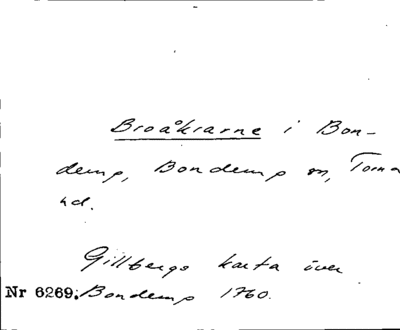 Broåkrarne i Bon-
demp, Bondemp sn, Torna
hd.
Gillbergs karta över
Nr 6269. Bondemp 1760.